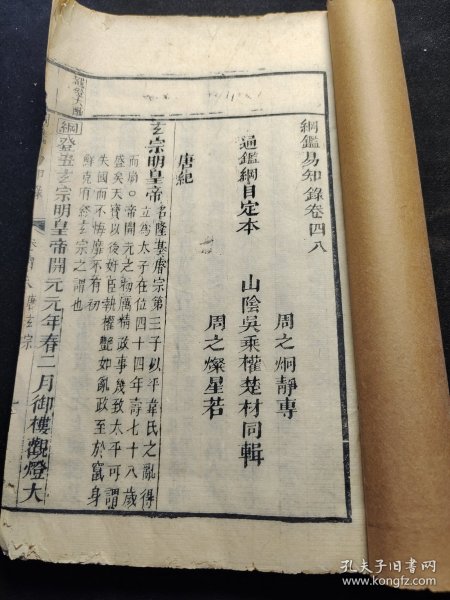 綱鑑易知錄卷四八
周之炯靜專
通鑑綱目定本 山陰吳乘權楚材同輯
周之燦星若
唐紀
玄宗明皇帝
名隆基睿宗第三子以平韋氏之亂得
立為太子在位四十四年壽七十八歲
而崩○帝開元之初厲精政事幾致太平可謂
盛矣天寶以後奸臣執權艷妃亂政至於竄身
失國而不悔靡不有初
鮮克有終玄宗之謂也
綱 癸丑玄宗明皇帝開元元年春二月御樓觀燈大
孔夫子旧书网
www.kongfz.com